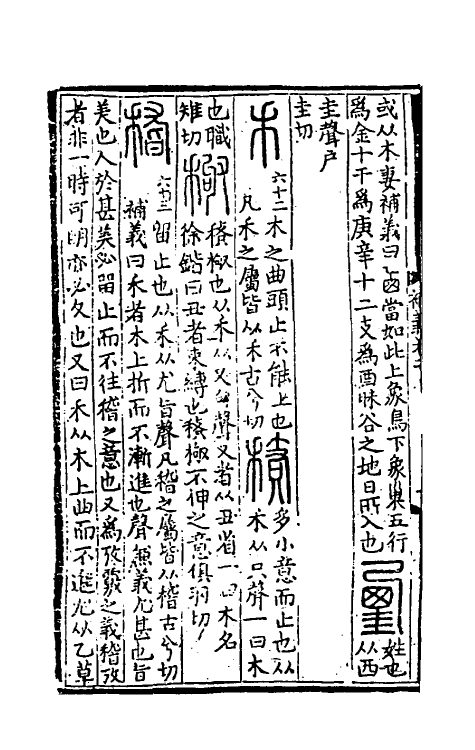 或从木妻補義曰㢴當如此上象鳥下象巢五行
爲金十干爲庚辛十二支爲酉昧谷之地日所入也 姓也从西
圭聲戶
圭切
禾 六十二木之曲頭止不能上也 多小意而止也从
凡禾之屬皆从禾古兮切 禾从只聲一曰木
也職 𥡴𥠻也从禾从又句聲又者从丑省一曰木名
雉切 徐鍇曰丑者束縛也𥡴𥠻不伸之意俱羽切
稽 六十三留止也从禾从尤旨聲凡稽之屬皆从稽古兮切
補義曰禾者木上折而不漸進也聲無義尤甚也旨
美也人於甚美必留止而不往稽之意也又爲攷覈之義稽攷
者非一時可明亦必久也又曰禾从木上曲而不進尤从乙草